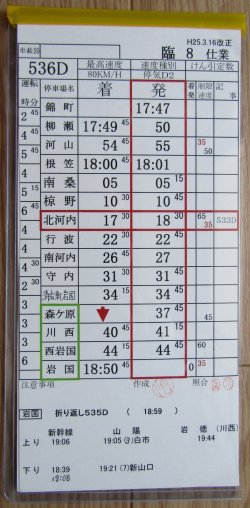 H25.3.16改正
車載器 臨 8 仕業
536D 最高速度 速度種別 けん引定数
80KM/H 停気D2
運転時分 停車場名 着 発 着発 制限速度 記事
錦町 17:47
2 45
柳瀬 17:49 45 50
4 45
河山 54 45 55 35 50
5
根笠 18:00 45 18:01
4
南桑 05 05 15
椋野 10 30 10 45
北河内 17 30 18 30 65 35 533D
行波 22 30 22 45
南河内 26 45 27
守内 31 30 31 45
34 15 34 45
森ケ原 37 45
3
川西 40 45 41 15 45
3
西岩国 44 15 44 45 60
6
岩国 18:50 45 0 35
注意事項 作成 照合
岩国 折り返し535D ( 18:59 )
新幹線 山陽 岩徳 (川西)
上り 19:06 19:05 ③白市 19:44
下り 18:39 19:21 (7)新山口
19:08